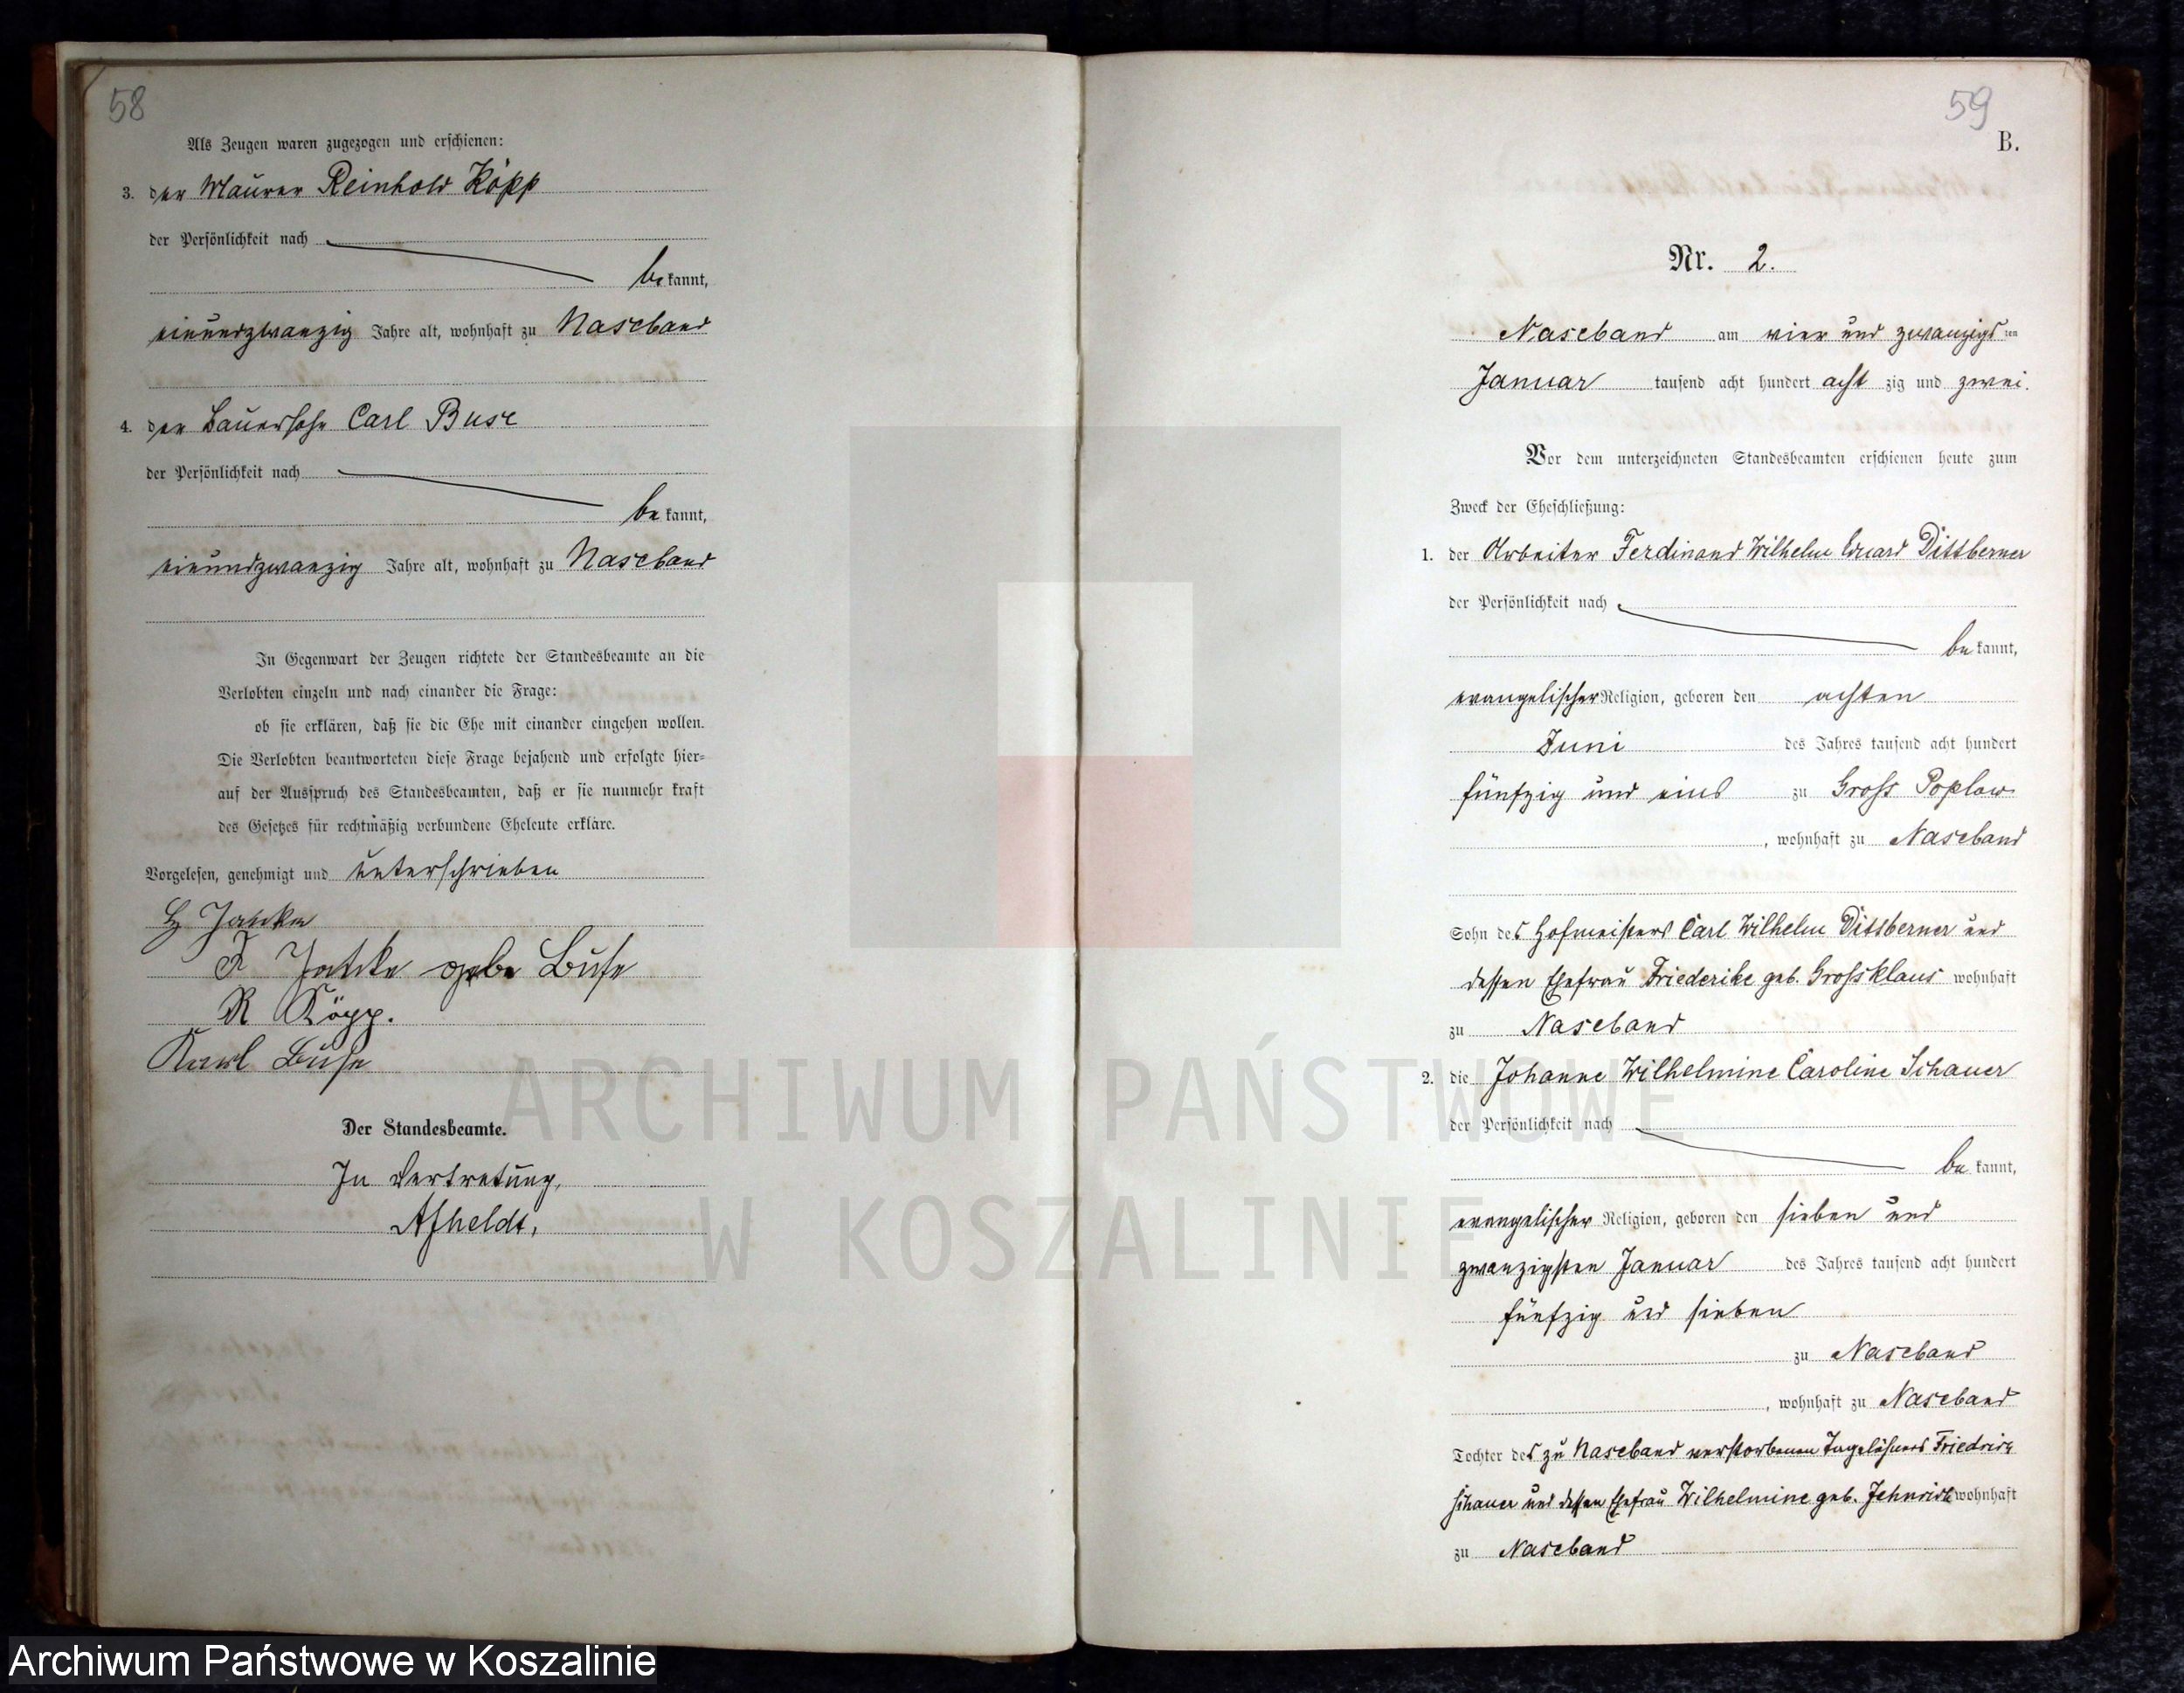 58
Als Zeugen waren zugezogen und erschienen:
3. der Maurer Reinhold Köpp
der Persönlichkeit nach
bekannt,
einundzwanzig Jahre alt, wohnhaft zu Naseband
4. der Bauersohn Carl Buse
der Persönlichkeit nach
bekannt,
einundzwanzig Jahre alt, wohnhaft zu Naseband
In Gegenwart der Zeugen richtete der Standesbeamte an die
Verlobten einzeln und nach einander die Frage:
ob sie erklären, daß sie die Ehe mit einander eingehen wollen.
Die Verlobten beantworteten diese Frage bejahend und erfolgte hier-
auf der Ausspruch des Standesbeamten, daß er sie nunmehr kraft
des Gesetzes für rechtmäßig verbundene Eheleute erkläre.
Vorgelesen, genehmigt und unterschrieben
Jahnke
F Jahnke gebe Buse
R Köpp.
Karl Buse
Der Standesbeamte.
In Vertretung,
Afheldt,
59
B.
Nr. 2.
Naseband am vier und zwanzigsten
Januar tausend acht hundert achtzig und zwei.
Vor dem unterzeichneten Standesbeamten erschienen heute zum
Zweck der Eheschließung:
1. der Arbeiter Ferdinand Wilhelm Eduard Dittberner
der Persönlichkeit nach
bekannt,
evangelischer Religion, geboren den achten
Juni des Jahres tausend acht hundert
fünfzig und eins zu Gross Poplow
, wohnhaft zu Naseband
Sohn des Hofmeisters Carl Wilhelm Dittberner und
dessen Ehefrau Friederike geb. Grossklaus wohnhaft
zu Naseband
2. die Johanne Wilhelmine Caroline Schauer
der Persönlichkeit nach
bekannt,
evangelischer Religion, geboren den sieben und
zwanzigsten Januar des Jahres tausend acht hundert
fünfzig und sieben
zu Naseband
, wohnhaft zu Naseband
Tochter des zu Naseband verstorbenen Tagelöhners Friedrich
Schauer und dessen Ehefrau Wilhelmine geb. wohnhaft
zu Naseband
ARCHIWUM PAŃSTWOWE
W KOSZALINIE
Archiwum Państwowe w Koszalinie